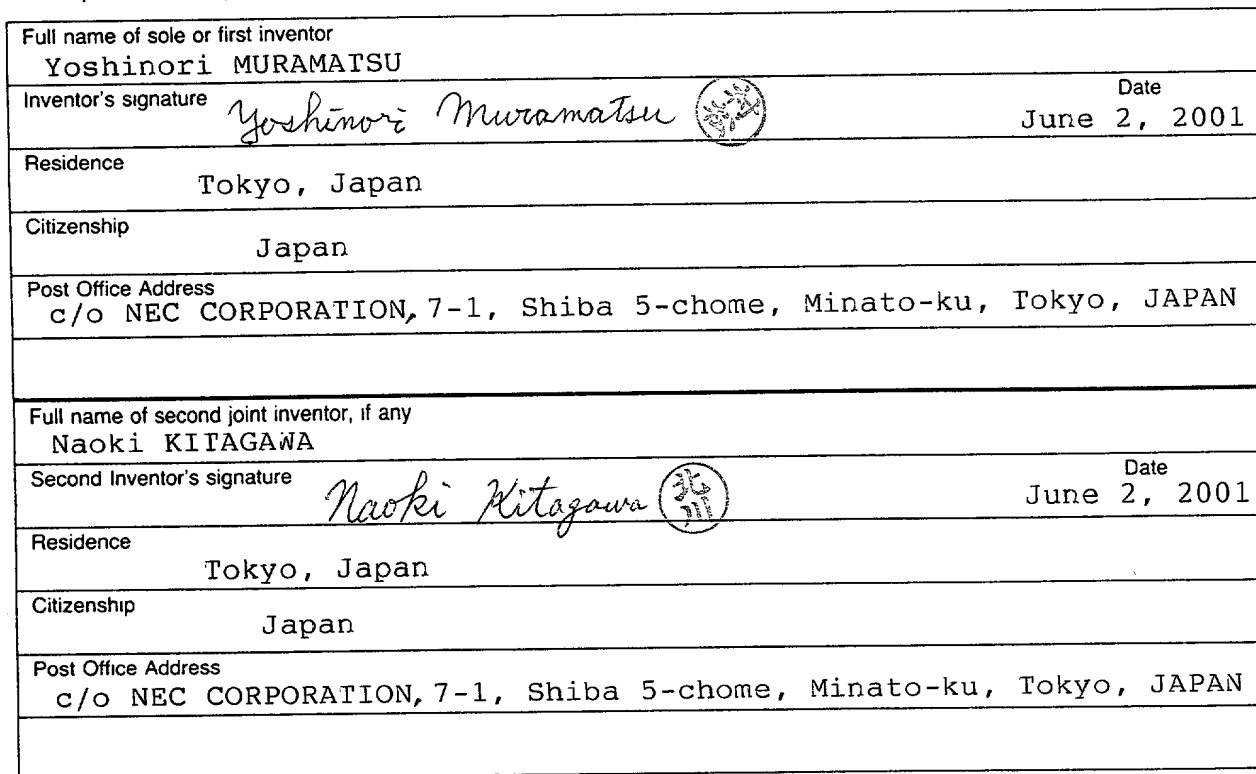 Full name of sole or first inventor
Yoshinori MURAMATSU
Inventor's signature Yoshinori Muramatsu Date
June 2, 2001
Residence
Tokyo, Japan
Citizenship
Japan
Post Office Address
c/o NEC CORPORATION, 7-1, Shiba 5-chome, Minato-ku, Tokyo, JAPAN
Full name of second joint inventor, if any
Naoki KITAGAWA
Second Inventor's signature Naoki Kitagawa 北川 Date
June 2, 2001
Residence
Tokyo, Japan
Citizenship
Japan
Post Office Address
c/o NEC CORPORATION, 7-1, Shiba 5-chome, Minato-ku, Tokyo, JAPAN